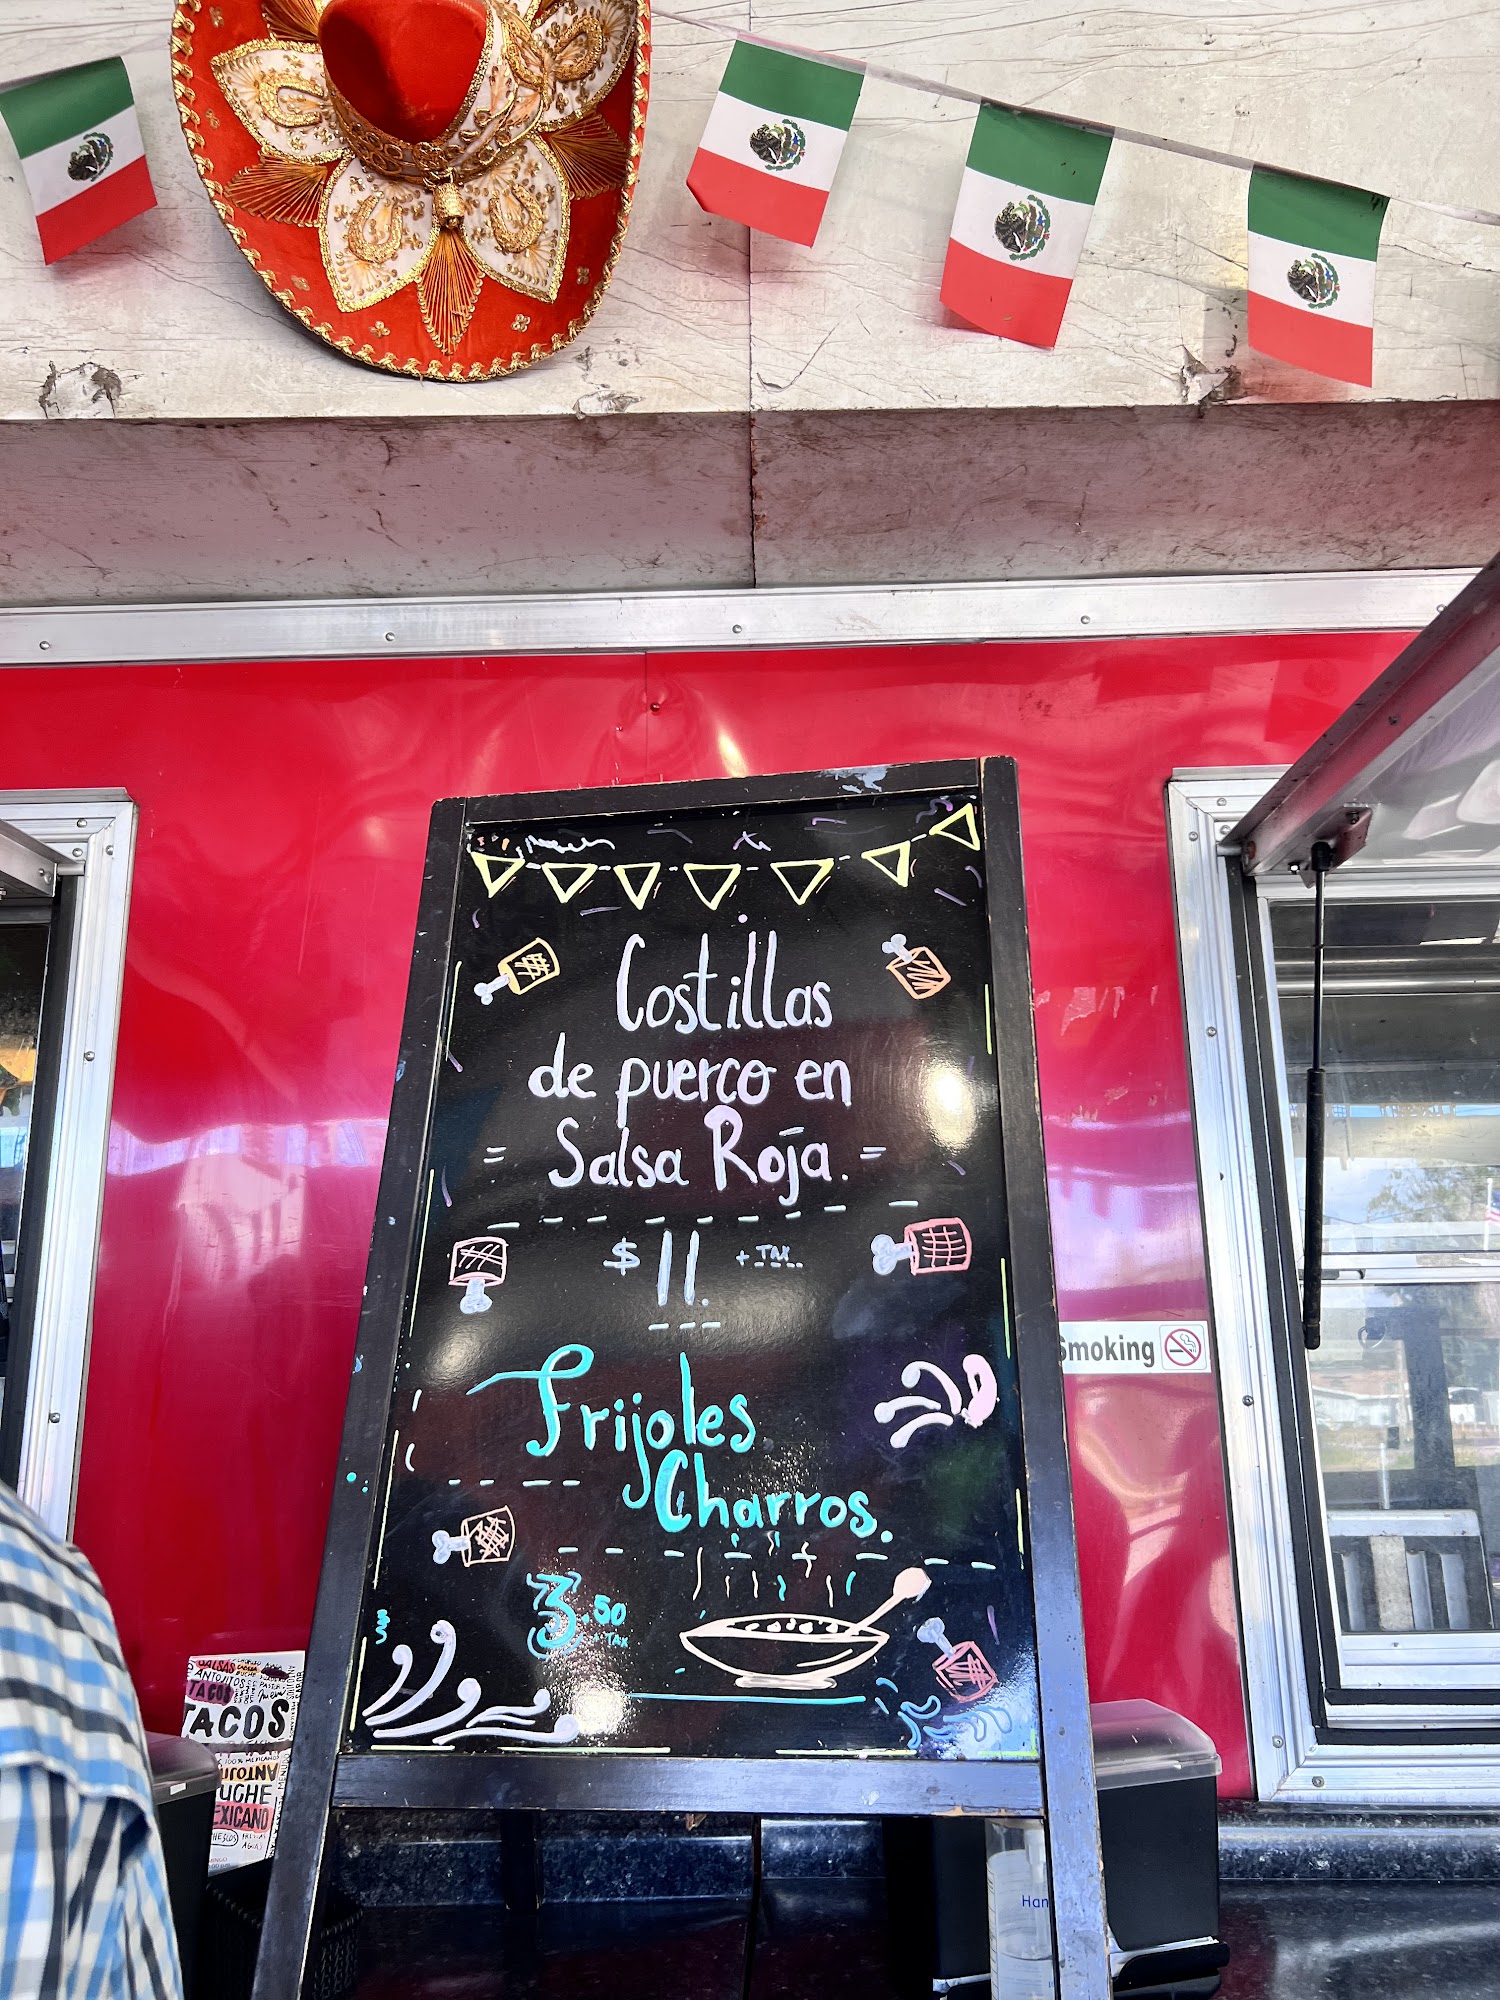 Costillas
de puerco en
= Salsa Roja. =
$11. + TAX
Frijoles
Charros.
3.50
+ TAX
Smoking
SALSAS
ANTOJITOS
TACOS
TACOS
100% MEXICANO
MENUDO
UCHE
EXICANO
AGUAS
Han